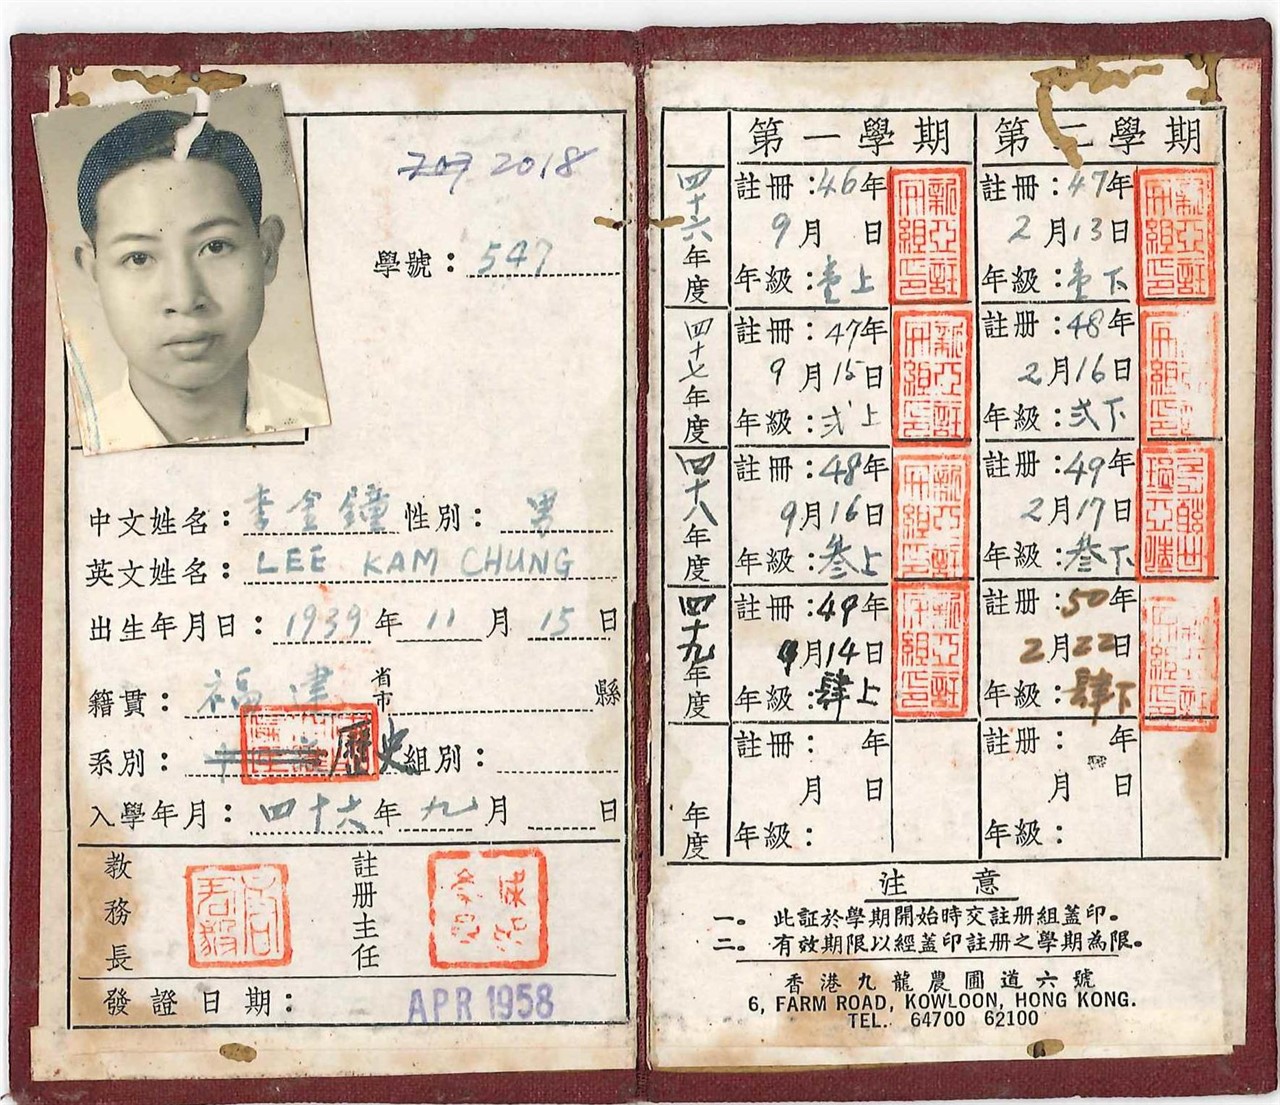 2018
學號：547
中文姓名：李金鐘 性別：男
英文姓名：LEE KAM CHUNG
出生年月日：1939年11月15日
籍貫：福建 省市 縣
系別：歷史 組別：
入學年月：四十六年九月 日
教務長
註册主任
發證日期：APR 1958
第一學期 第二學期
四十六年度
註冊：46年
9月 日
年級：壹上
新亞註冊組印
註冊：47年
2月13日
年級：壹下
新亞註冊組印
四十七年度
註冊：47年
9月15日
年級：弍上
新亞註冊組印
註册：48年
2月16日
年級：弍下
四十八年度
註冊：48年
9月16日
年級：叁上
新亞註冊組印
註册：49年
2月17日
年級：叁下
四十九年度
註冊：49年
9月14日
年級：肆上
新亞註冊組印
註册：50年
2月22日
年級：肆下
年度
註冊： 年
月 日
年級：
註册： 年
月 日
年級：
注意
一。 此証於學期開始時交註册組盖印。
二。 有效期限以經盖印註册之學期為限。
香港九龍農圃道六號
6, FARM ROAD, KOWLOON, HONG KONG.
TEL. 64700 62100